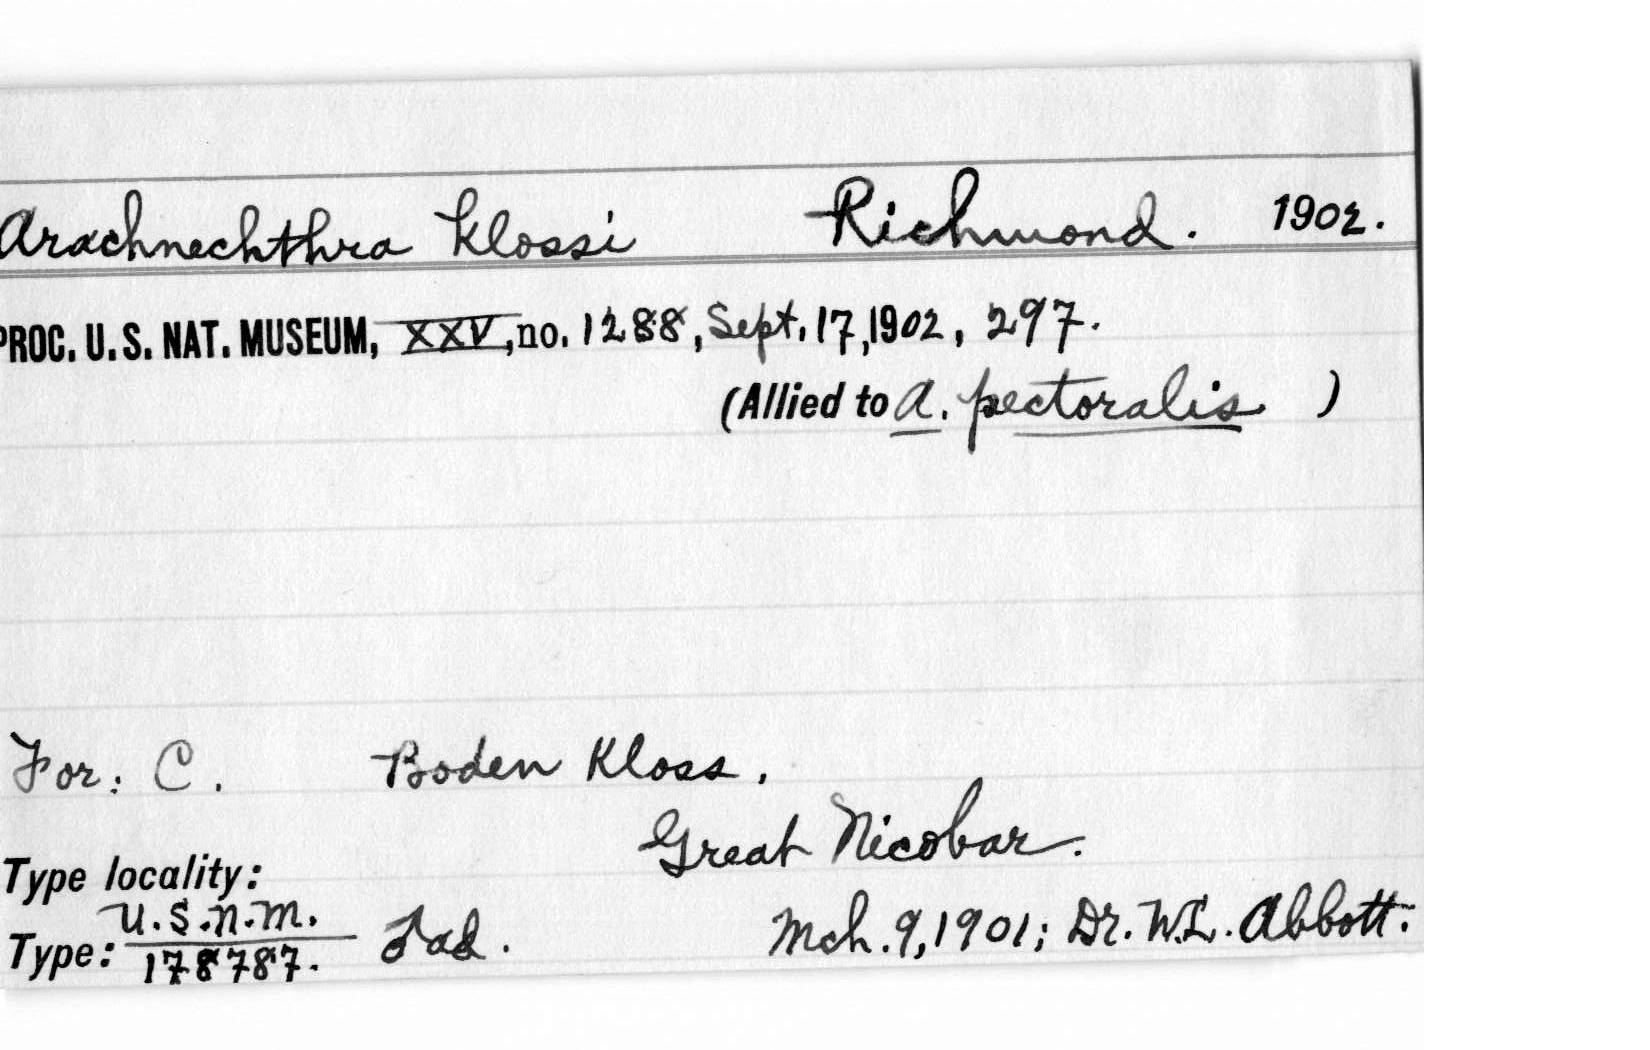 Arachnechthra klossi Richmond. 1902.
PROC. U. S. NAT. MUSEUM, XXV, no. 1288, Sept. 17, 1902, 297.
(Allied to A. pectoralis )
For: C. Boden Kloss.
Great Nicobar.
Type locality:
U.S.N.M.
Type: ♂ad. Mch. 9, 1901; Dr. W.L. Abbott.
178787.